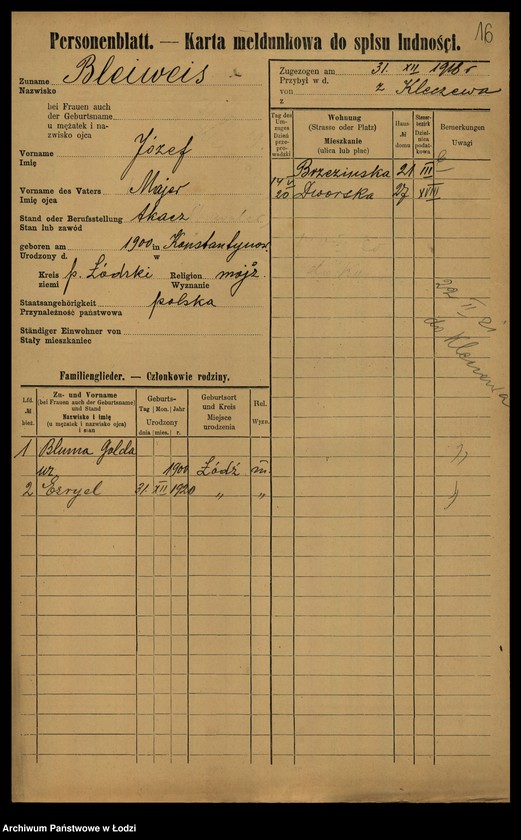 16
Personenblatt. — Karta meldunkowa do spisu ludności.
Zuname Bleiweis
Nazwisko
bei Frauen auch
der Geburtsname
u mężatek i na-
zwisko ojca
Vorname Józef
Imię
Vorname des Vaters Majer
Imię ojca
Stand oder Berufsstellung tkacz
Stan lub zawód
geboren am 1900 in Konstantynow.
Urodzony d. w
Kreis p. Łódzki Religion mojż.
ziemi Wyznanie
Staatsangehörigkeit polska
Przynależność państwowa
Ständiger Einwohner von
Stały mieszkaniec
Zugezogen am 31. XII 1918 r
Przybył w d.
von z Kleczewa
z
Tag des Um-
zuges Dzień
prze-
prowadzki
Wohnung
(Strasse oder Platz)
Mieszkanie
(ulica lub plac)
Haus-
№
domu
Steuer-
bezirk
Dziel-
nica
podat-
kowa
Bemerkungen
Uwagi
Brzezinska 21 III
14 V
20 Dworska 27 XVIII
22 II 21
do Kleczewa
Familienglieder. — Członkowie rodziny.
Lfd.
№
bież.
Zu- und Vorname
(bei Frauen auch der Geburtsname)
und Stand
Nazwisko i imię
(u mężatek i nazwisko ojca)
i stan
Geburts-
Tag Mon. Jahr
Urodzony
dnia mies. r.
Geburtsort
und Kreis
Miejsce
urodzenia
Rel.
Wyzn.
1 Bluma Golda
uz. 1900 Łódź m.
2 Ezryel 31 XII 1920 " "
Archiwum Państwowe w Łodzi